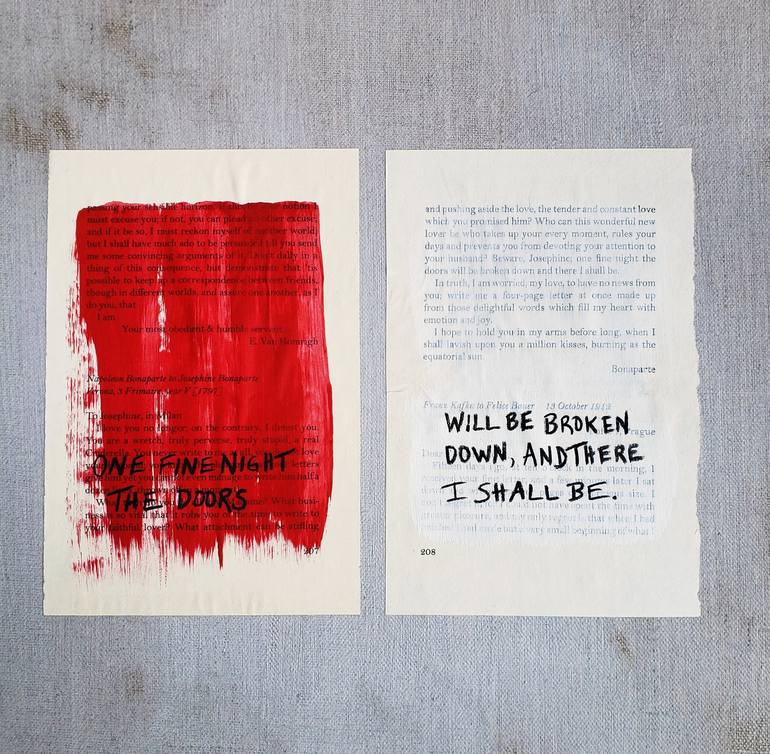 passing your sensible horizon, if this notion I
must excuse you; if not, you can plead another excuse,
and if it be so, I must reckon myself of another world;
but I shall have much ado to be persuaded till you send
me some convincing arguments of it. Don't dally in a
thing of this consequence, but demonstrate that 'tis
possible to keep up a correspondence between friends,
though in different worlds, and assure one another, as I
do you, that
I am
Your most obedient & humble servant
E. Van Homrigh
Napoleon Bonaparte to Josephine Bonaparte
Verona, 3 Frimaire, Year V [1797]
To Josephine, in Milan
I love you no longer; on the contrary, I detest you.
You are a wretch, truly perverse, truly stupid, a real
Cinderella. You never write to me love
letters
half a
ONE FINE NIGHT
THE DOORS
me? What busi-
ness is so vital that it robs you of the time to write to
your faithful lover? What attachment can be stifling
207
and pushing aside the love, the tender and constant love
which you promised him? Who can this wonderful new
lover be who takes up your every moment, rules your
days and prevents you from devoting your attention to
your husband? Beware, Josephine; one fine night the
doors will be broken down and there I shall be.
In truth, I am worried, my love, to have no news from
you; write me a four-page letter at once made up
from those delightful words which fill my heart with
emotion and joy.
I hope to hold you in my arms before long, when I
shall lavish upon you a million kisses, burning as the
equatorial sun.
Bonaparte
Franz Kafka to Felice Bauer 13 October 1912
Prague
WILL BE BROKEN
DOWN, AND THERE
I SHALL BE.
in the morning, I
later I sat
not have spent the time with
that when I had
very small beginning of what I
208